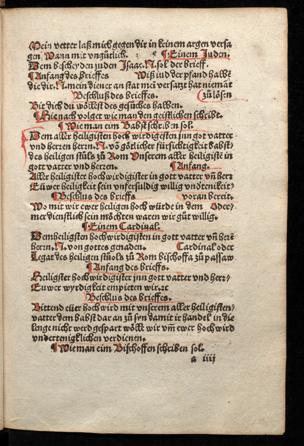 Mein vetter laß mich gegen dir in keinem argen versa
gen Wann mit vngütlich. ¶ Einem Juden.
Dem bescheyden juden Isaac. N. sol der brieff.
¶ Anfang des brieffs Wiß iud der pfand halbē
die dir. N. mein diener an stat mei versatzt hat niemāt
Beschluß des brieffes. zů lösen
Bit dich du wöllest des gesůches halten.
¶ Hie nach volget wie man den geistlichen schreibt.
¶ Wie man eim Babst schreiben sol.
Dem aller heiligisten hochwirdigisten jnn got vatter
vnd herren herrn. N. von götlicher fürsichtigkeit babst
des heiligen stůls zů Rom Vnserm aller heiligiste in
gott vatter vnd herren. ¶ Anfang.
Aller heiligister hochwirdigister in gott vatter vñ herr
Eüwer heiligkeit sein vnser schuldig willig vndtenikeit
¶ Beschluß des brieffs. voran bereit.
Wo mit wir ewer heiligen hoch würde in den oder
mer dienstlich sein möchten waren wir gůt willig.
¶ Einem Cardinal.
Dem heiligsten hochwirdigisten in gott vatter vñ herrē
herrn. N. von gottes genaden. Cardinal oder
Legat des heiligen stůls zů Rom bischoffa zů passaw
¶ Anfang des brieffs.
Heiligster hochwirdigister jnn gott vatter vnd herr
Euwer wyrdigkeit empieten wir. ꝛc
Beschluß des brieffes.
Bittend eüer hochwird mit vnserem aller heiligisten
vatter dem babst dar an zů sen damit ir handel in die
lenge nicht werd gespart wölle wir vm̄ ewer hoch wird
vndertenigklichen verdienen.
¶ Wie man eim Bischoffen schreiben sol.
a iiij